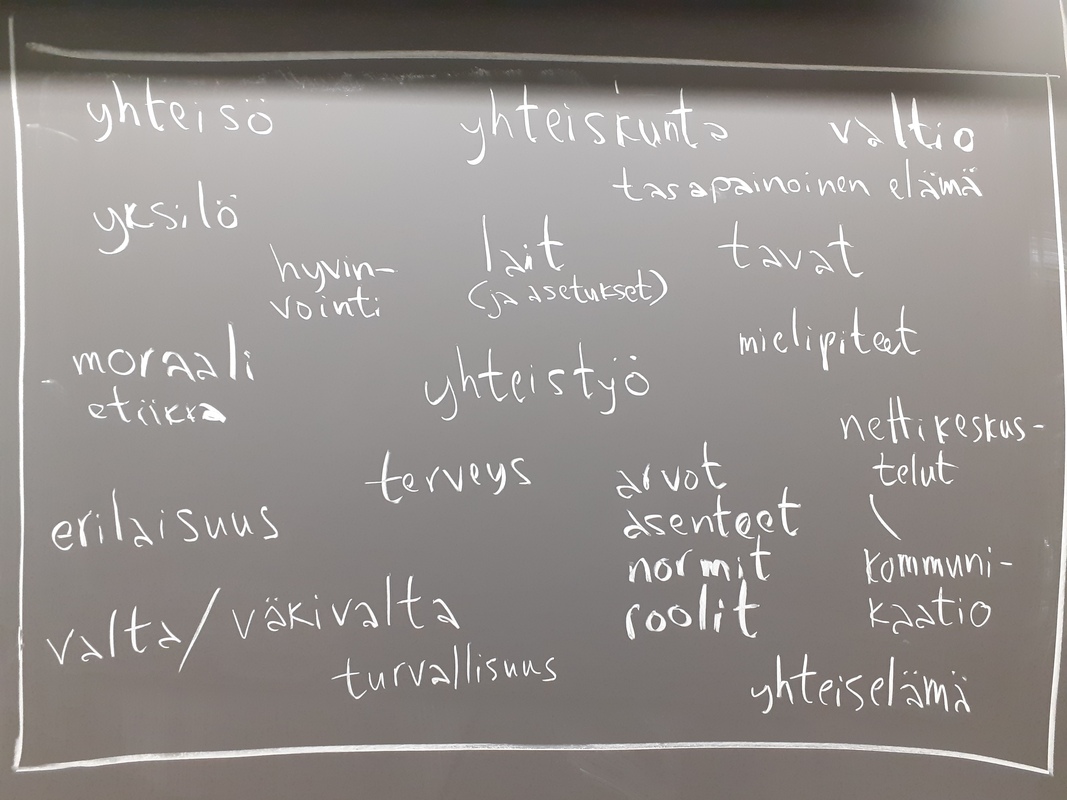 yhteisö
yhteiskunta
valtio
tasapainoinen elämä
yksilö
hyvin-
vointi
lait
(ja asetukset)
tavat
mielipiteet
moraali
etiikka
yhteistyö
nettikeskus-
telut
terveys
arvot
asenteet
normit
roolit
kommuni-
kaatio
erilaisuus
valta/väkivalta
turvallisuus
yhteiselämä